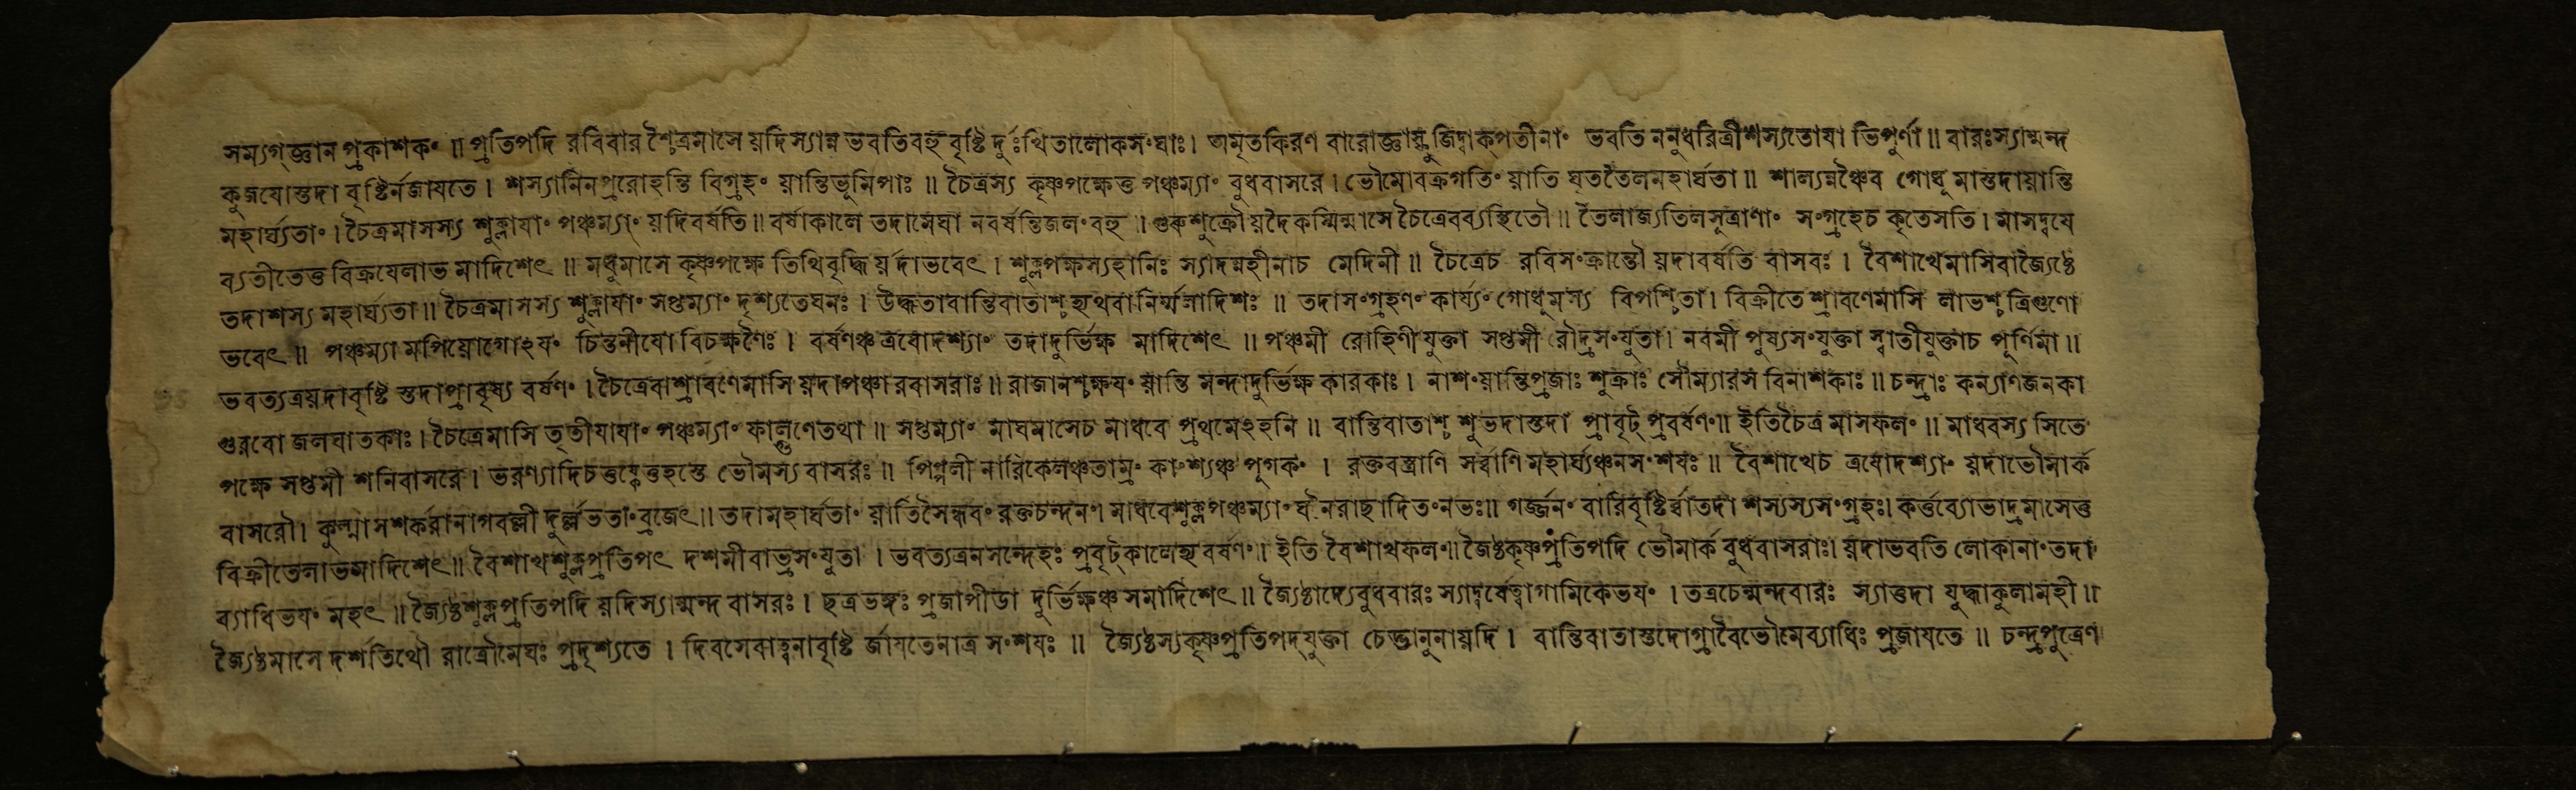 সম্যগ্জ্ঞান প্রকাশকং ॥ প্রতিপদি রবিবার শ্চৈত্রমাসে য়দিস্যান্ন ভবতিবহু বৃষ্টি র্দুঃখিতালোকসংঘাঃ। অমৃতকিরণ বারোজ্ঞাস্ফুজিদ্বাক্পতীনাং ভবতি ননুধরিত্রীশস্যতোযা ভিপুর্ণা ॥ বারঃস্যান্মন্দ
কুজযোস্তদা বৃষ্টির্নজাযতে । শস্যানিনপ্ররোহন্তি বিগ্রহং য়ান্তিভূমিপাঃ ॥ চৈত্রস্য কৃষ্ণপক্ষেত্ত পঞ্চম্যাং বুধবাসরে । ভৌমোবক্রগতিং য়াতি ঘৃততৈলমহার্ঘতা ॥ শাল্যন্নঞ্চৈব গোধুমাস্তদায়ান্তি
মহার্ঘ্যতাং । চৈত্রমাসস্য শুক্লাযাং পঞ্চম্যাং য়দিবর্ষতি ॥ বর্ষাকালে তদামেঘা নবর্ষন্তিজলংবহু । গুরুশুক্রৌয়দৈকস্মিন্মাসে চৈত্রেবব্যস্থিতৌ ॥ তৈলাজ্যতিলসূত্রাণাং সংগ্রহেচ কৃতেসতি । মাসদ্বযে
ব্যতীতেত্ত বিক্রযেলাভ মাদিশেৎ ॥ মধুমাসে কৃষ্ণপক্ষে তিথিবৃদ্ধি র্য়দাভবেৎ । শুক্লপক্ষস্যহানিঃ স্যাদন্নহীনাচ মেদিনী ॥ চৈত্রেচ রবিসংক্রান্তৌ য়দাবর্ষতি বাসবঃ । বৈশাখেমাসিবাজ্যৈষ্ঠে
তদাশস্য মহার্ঘ্যতা ॥ চৈত্রমাসস্য শুক্লাযাং সপ্তম্যাং দৃশ্যতেঘনঃ । উদ্ধতাবান্তিবাতাশ্চহ্যথবানির্ম্মলাদিশঃ ॥ তদাসংগ্রহণং কার্য্যং গোধুমস্য বিপশ্চিতা । বিক্রীতে শ্রাবণেমাসি লাভশ্চ ত্রিগুণো
ভবেৎ ॥ পঞ্চম্যা মপিয়োগোঽযং চিন্তনীযো বিচক্ষণৈঃ । বর্ষণঞ্চ ত্রযোদশ্যাং তদাদুর্ভিক্ষ মাদিশেৎ ॥ পঞ্চমী রোহিণীযুক্তা সপ্তমী রৌদ্রসংযুতা । নবমী পুষ্যসংযুক্তা স্বাতীযুক্তাচ পূর্ণিমা ॥
ভবত্যত্রয়দাবৃষ্টি স্তদাপ্রাবৃষ্য বর্ষণং । চৈত্রেবাশ্রাবণেমাসি য়দাপঞ্চারবাসরাঃ ॥ রাজানশ্চক্ষযং য়ান্তি মন্দাদুর্ভিক্ষ কারকাঃ । নাশংয়ান্তিপ্রজাঃ শুক্রাঃ সৌম্যারস বিনাশকাঃ ॥ চন্দ্রাঃ কল্যাণজনকা
গুরবো জলঘাতকাঃ । চৈত্রেমাসি তৃতীযাযাং পঞ্চম্যাং ফাল্গুণেতথা ॥ সপ্তম্যাং মাঘমাসেচ মাধবে প্রথমেঽহনি ॥ বান্তিবাতাশ্চ শুভদাস্তদা প্রাবৃট্ প্রবর্ষণং ॥ ইতিচৈত্র মাসফলং ॥ মাধবস্য সিতে
পক্ষে সপ্তমী শনিবাসরে । ভরণ্যাদিচত্তষ্কেত্তহস্তে ভৌমস্য বাসরঃ ॥ পিপ্পলী নারিকেলঞ্চতাম্রং কাংশ্যঞ্চ পূগকং । রক্তবস্ত্রাণি সর্ব্বাণি মহার্ঘ্যঞ্চনসংশযঃ ॥ বৈশাখেচ ত্রযোদশ্যাং য়দাভৌমার্ক
বাসরৌ । কুল্মাসশর্করানাগবল্লী দুর্ল্লভতাং ব্রজেৎ ॥ তদামহার্ঘতাং য়াতিসৈন্ধবং রক্তচন্দনং । মাধবেশুক্লপঞ্চম্যাং ঘনৈরাছাদিতংনভঃ ॥ গর্জ্জনং বারিবৃষ্টির্ব্বাতদা শস্যস্যসংগ্রহঃ । কর্ত্তব্যোভাদ্রমাসেত্ত
বিক্রীতেলাভমাদিশেৎ ॥ বৈশাখশুক্লপ্রতিপৎ দশমীবাভ্রসংযুতা । ভবত্যত্রনসন্দেহঃ প্রবৃট্কালেহ্যবর্ষণং ॥ ইতি বৈশাখফলং ॥ জৈষ্ঠকৃষ্ণপ্রতিপদি ভৌমার্ক বুধবাসরাঃ । য়দাভবতি লোকানাংতদা
ব্যাধিভযং মহৎ ॥ জ্যৈষ্ঠশুক্লপ্রতিপদি য়দিস্যান্মন্দ বাসরঃ । ছত্রভঙ্গঃ প্রজাপীডা দুর্ভিক্ষঞ্চ সমাদিশেৎ ॥ জ্যৈষ্ঠাদ্যেবুধবারঃ স্যাদ্বর্ষেত্বাগামিকেভযং । তত্রচেন্মন্দবারঃ স্যাত্তদা যুদ্ধাকুলামহী ॥
জ্যৈষ্ঠমাসে দর্শতিথৌ রাত্রৌমেঘঃ প্রদৃশ্যতে । দিবসেবাত্বনাবৃষ্টি র্জাযতেনাত্র সংশযঃ ॥ জ্যৈষ্ঠস্যকৃষ্ণপ্রতিপদ্যুক্তা চেদ্ভানুনায়দি । বান্তিবাতাস্তদোগ্রাবৈভৌমেব্যাধিঃ প্রজাযতে ॥ চন্দ্রপুত্রেণ